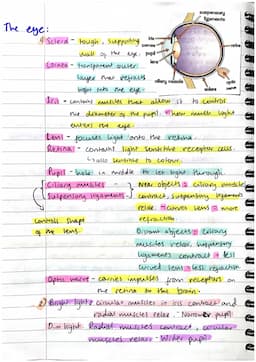 The eye:
suspensory
ligaments
Sclera - tough, supporting
wall of the eye.
Cornea - transparent outer
layer that refracts
light into the eye.
Iris - contains muscles that allow it to control
the diameter of the pupil + how much light
enters the eye.
Lens - focuses light onto the retina.
Retina - contains light sensitive receptor cells.
also sensitive to colour.
Pupil - hole in middle to let light through.
Ciliary muscles -
Suspensory ligaments -
Near objects : ciliary muscles
contract, suspensory ligaments
relax : curves lens = more
refraction
Controls shape
of the lens.
Distant objects : ciliary
muscles relax, suspensory
ligaments contract = less
curved lens = less refraction
Optic nerve - carries impulses from receptors on
the retina to the brain.
Bright light : circular muscles in iris contract and
radial muscles relax. Narrower pupil.
Dim light : Radial muscles contract, circular
muscles relax. Wider pupil.
iris
cornea
pupil
lens
retina
ciliary muscle
optic
nerve